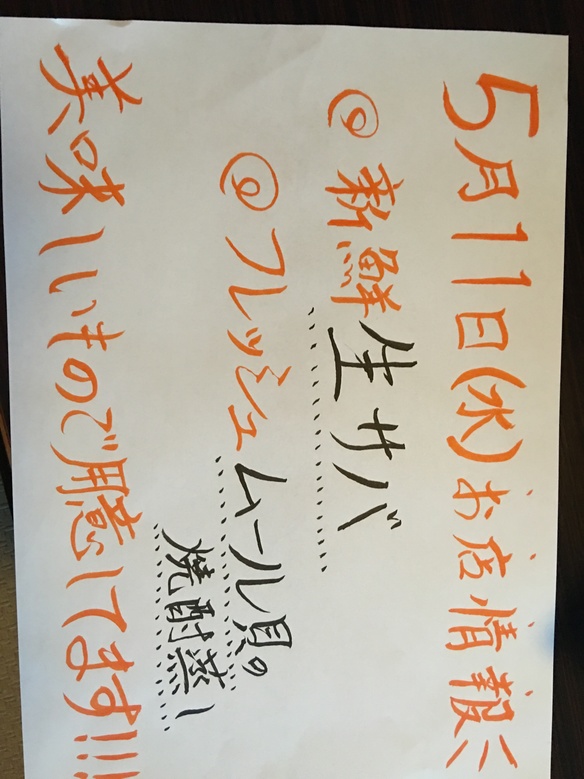 5月11日(水)お店情報ミ
@新鮮生サバ
@フレッシュムール貝の
焼酎蒸し
美味しいもので用意してます!!!